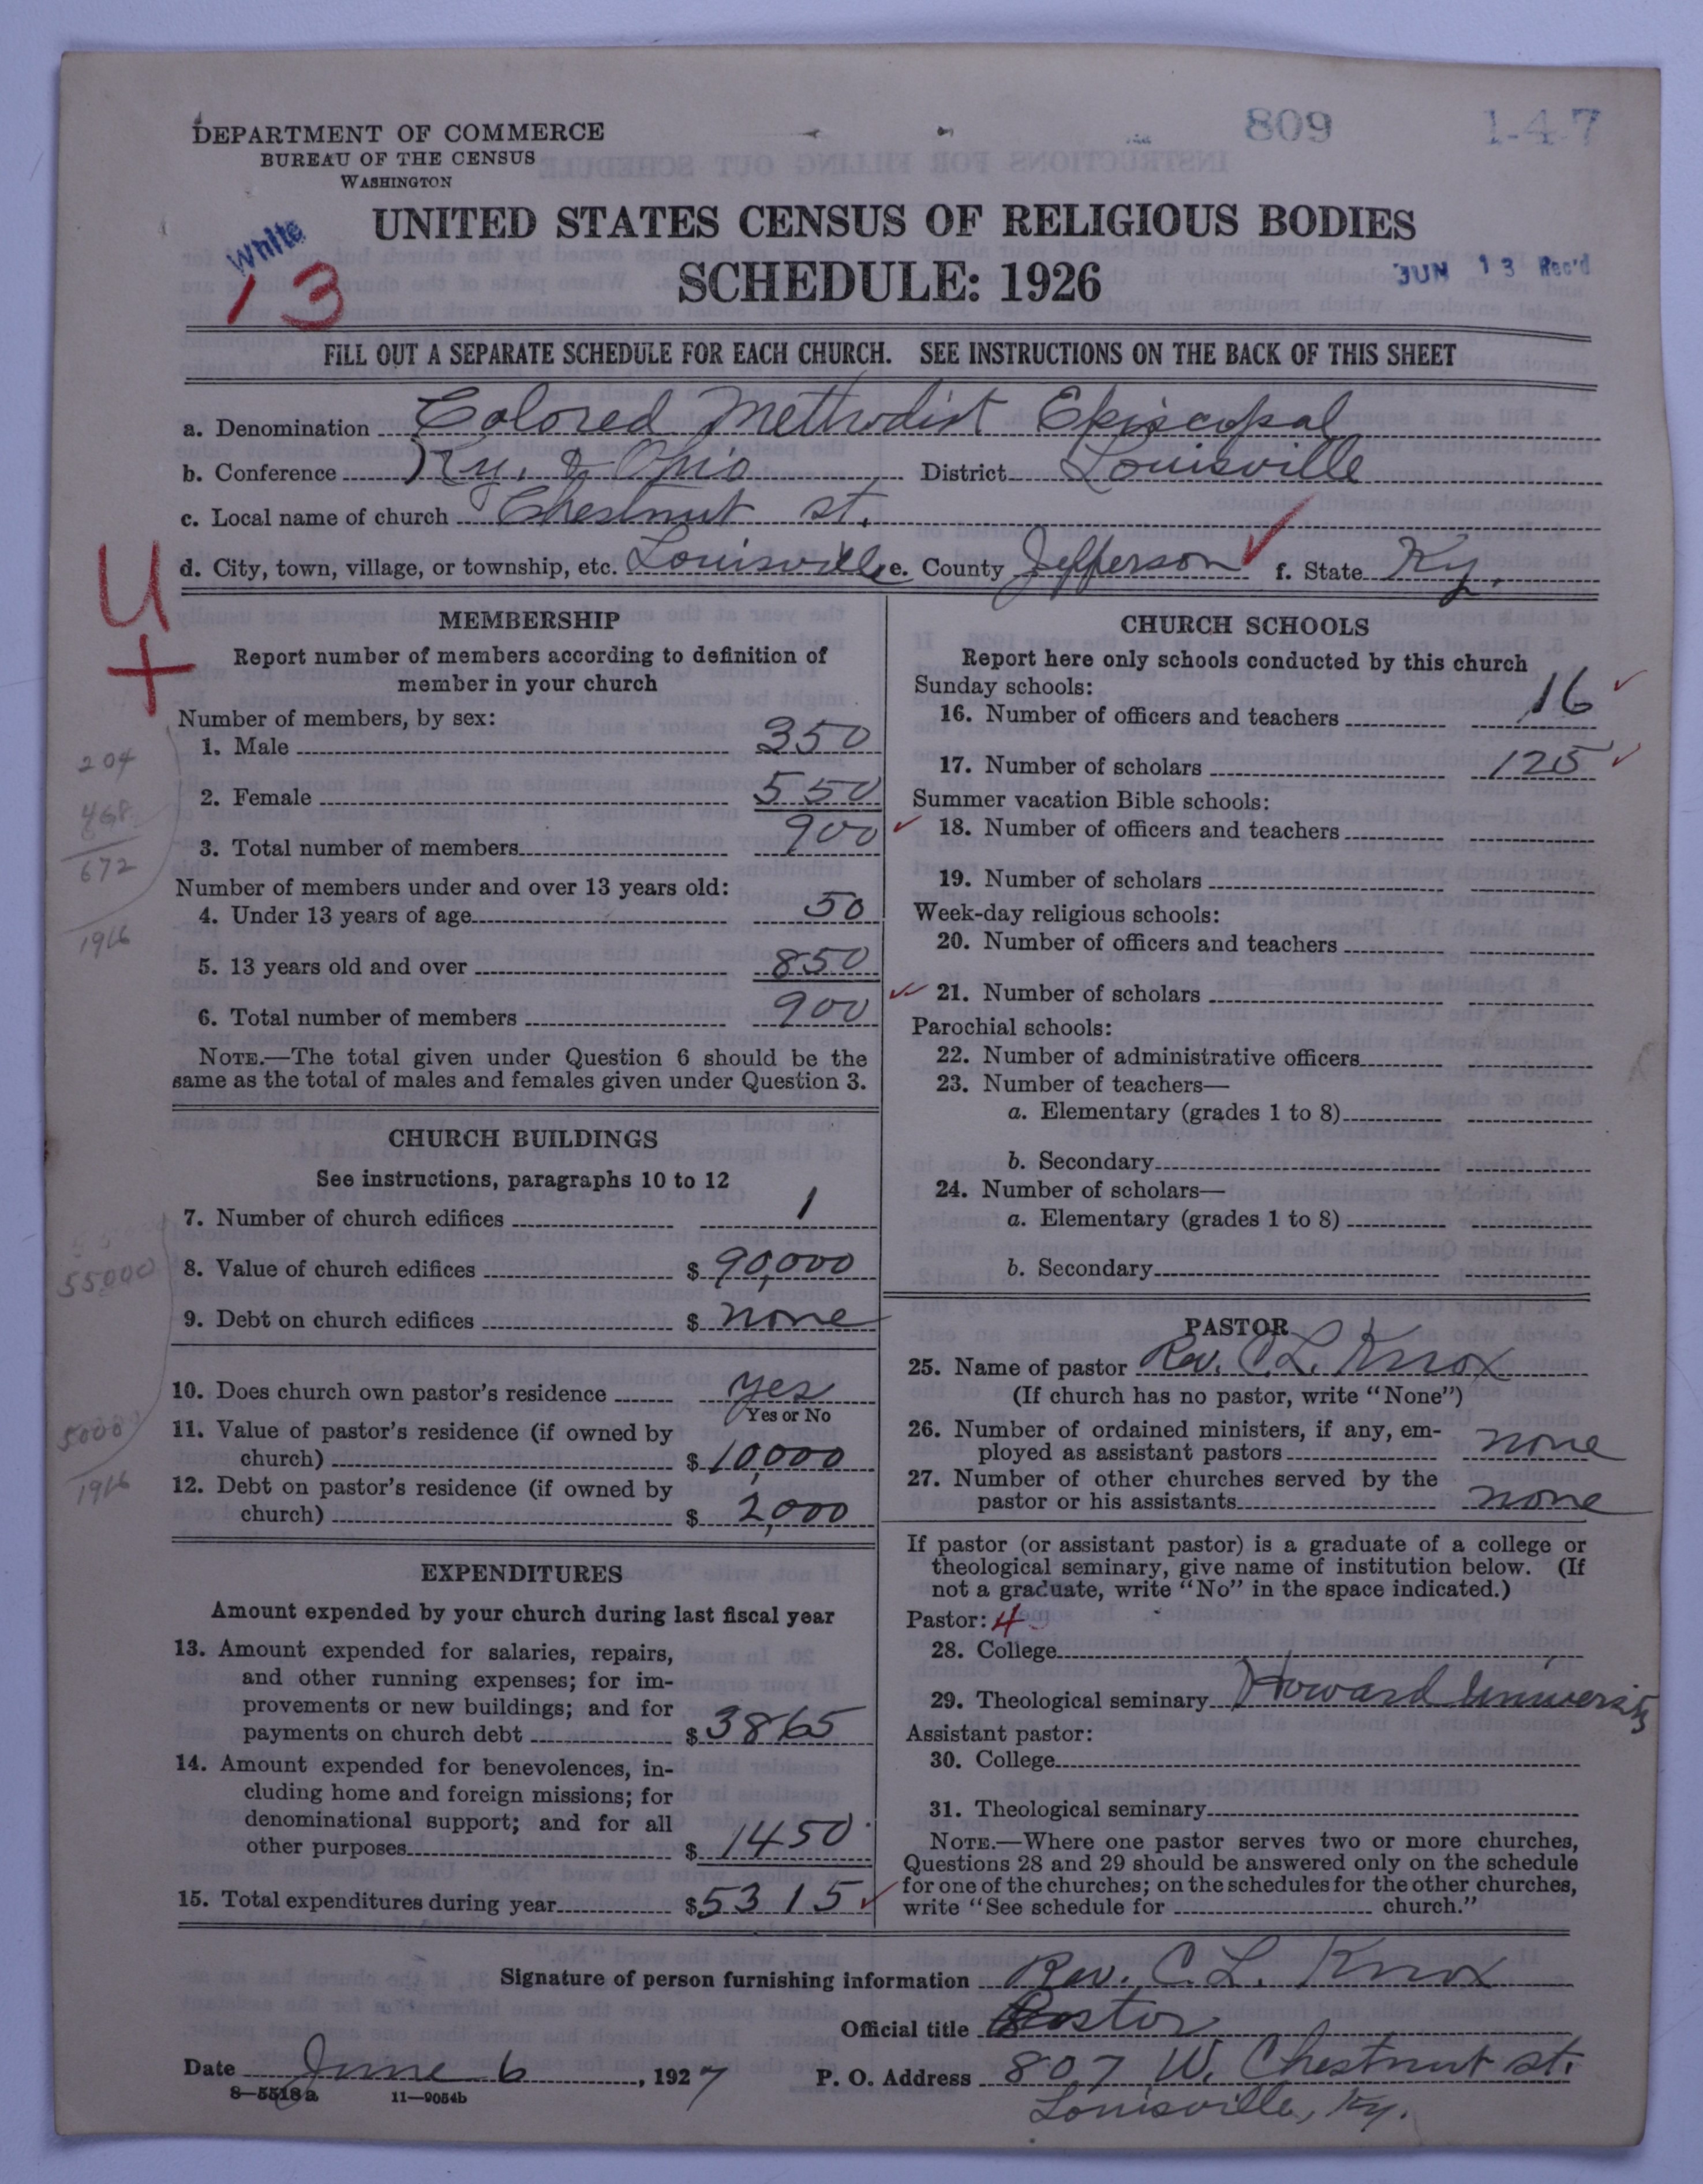 809
1-4-7
DEPARTMENT OF COMMERCE
BUREAU OF THE CENSUS
WASHINGTON
White
13
UNITED STATES CENSUS OF RELIGIOUS BODIES
SCHEDULE: 1926
JUN 13 Rec'd
FILL OUT A SEPARATE SCHEDULE FOR EACH CHURCH. SEE INSTRUCTIONS ON THE BACK OF THIS SHEET
a. Denomination Colored Methodist Episcopal
b. Conference Ky. & Ohio District Louisville
c. Local name of church Chestnut st.
d. City, town, village, or township, etc. Louisville e. County Jefferson f. State Ky.
U
+
MEMBERSHIP
Report number of members according to definition of
member in your church
Number of members, by sex:
1. Male 350
2. Female 550
3. Total number of members 900
204
468
672
1916
Number of members under and over 13 years old:
4. Under 13 years of age 50
5. 13 years old and over 850
6. Total number of members 900
NOTE.—The total given under Question 6 should be the
same as the total of males and females given under Question 3.
CHURCH BUILDINGS
See instructions, paragraphs 10 to 12
7. Number of church edifices 1
8. Value of church edifices $ 90,000
55000
9. Debt on church edifices $ none
10. Does church own pastor's residence yes
Yes or No
11. Value of pastor's residence (if owned by
church) $ 10,000
5000
1916
12. Debt on pastor's residence (if owned by
church) $ 2,000
EXPENDITURES
Amount expended by your church during last fiscal year
13. Amount expended for salaries, repairs,
and other running expenses; for im-
provements or new buildings; and for
payments on church debt $ 3865
14. Amount expended for benevolences, in-
cluding home and foreign missions; for
denominational support; and for all
other purposes $ 1450
15. Total expenditures during year $ 5315
CHURCH SCHOOLS
Report here only schools conducted by this church
Sunday schools:
16. Number of officers and teachers 16
17. Number of scholars 125
Summer vacation Bible schools:
18. Number of officers and teachers
19. Number of scholars
Week-day religious schools:
20. Number of officers and teachers
21. Number of scholars
Parochial schools:
22. Number of administrative officers
23. Number of teachers—
a. Elementary (grades 1 to 8)
b. Secondary
24. Number of scholars—
a. Elementary (grades 1 to 8)
b. Secondary
PASTOR
25. Name of pastor Rev. C. L. Knox
(If church has no pastor, write "None")
26. Number of ordained ministers, if any, em-
ployed as assistant pastors none
27. Number of other churches served by the
pastor or his assistants none
If pastor (or assistant pastor) is a graduate of a college or
theological seminary, give name of institution below. (If
not a graduate, write "No" in the space indicated.)
Pastor: 4
28. College
29. Theological seminary Howard University
Assistant pastor:
30. College
31. Theological seminary
NOTE.—Where one pastor serves two or more churches,
Questions 28 and 29 should be answered only on the schedule
for one of the churches; on the schedules for the other churches,
write "See schedule for church."
Signature of person furnishing information Rev. C. L. Knox
Official title Pastor
Date June 6, 1927 P. O. Address 807 W. Chestnut st.
8-5518a 11-9054b
Louisville, Ky.